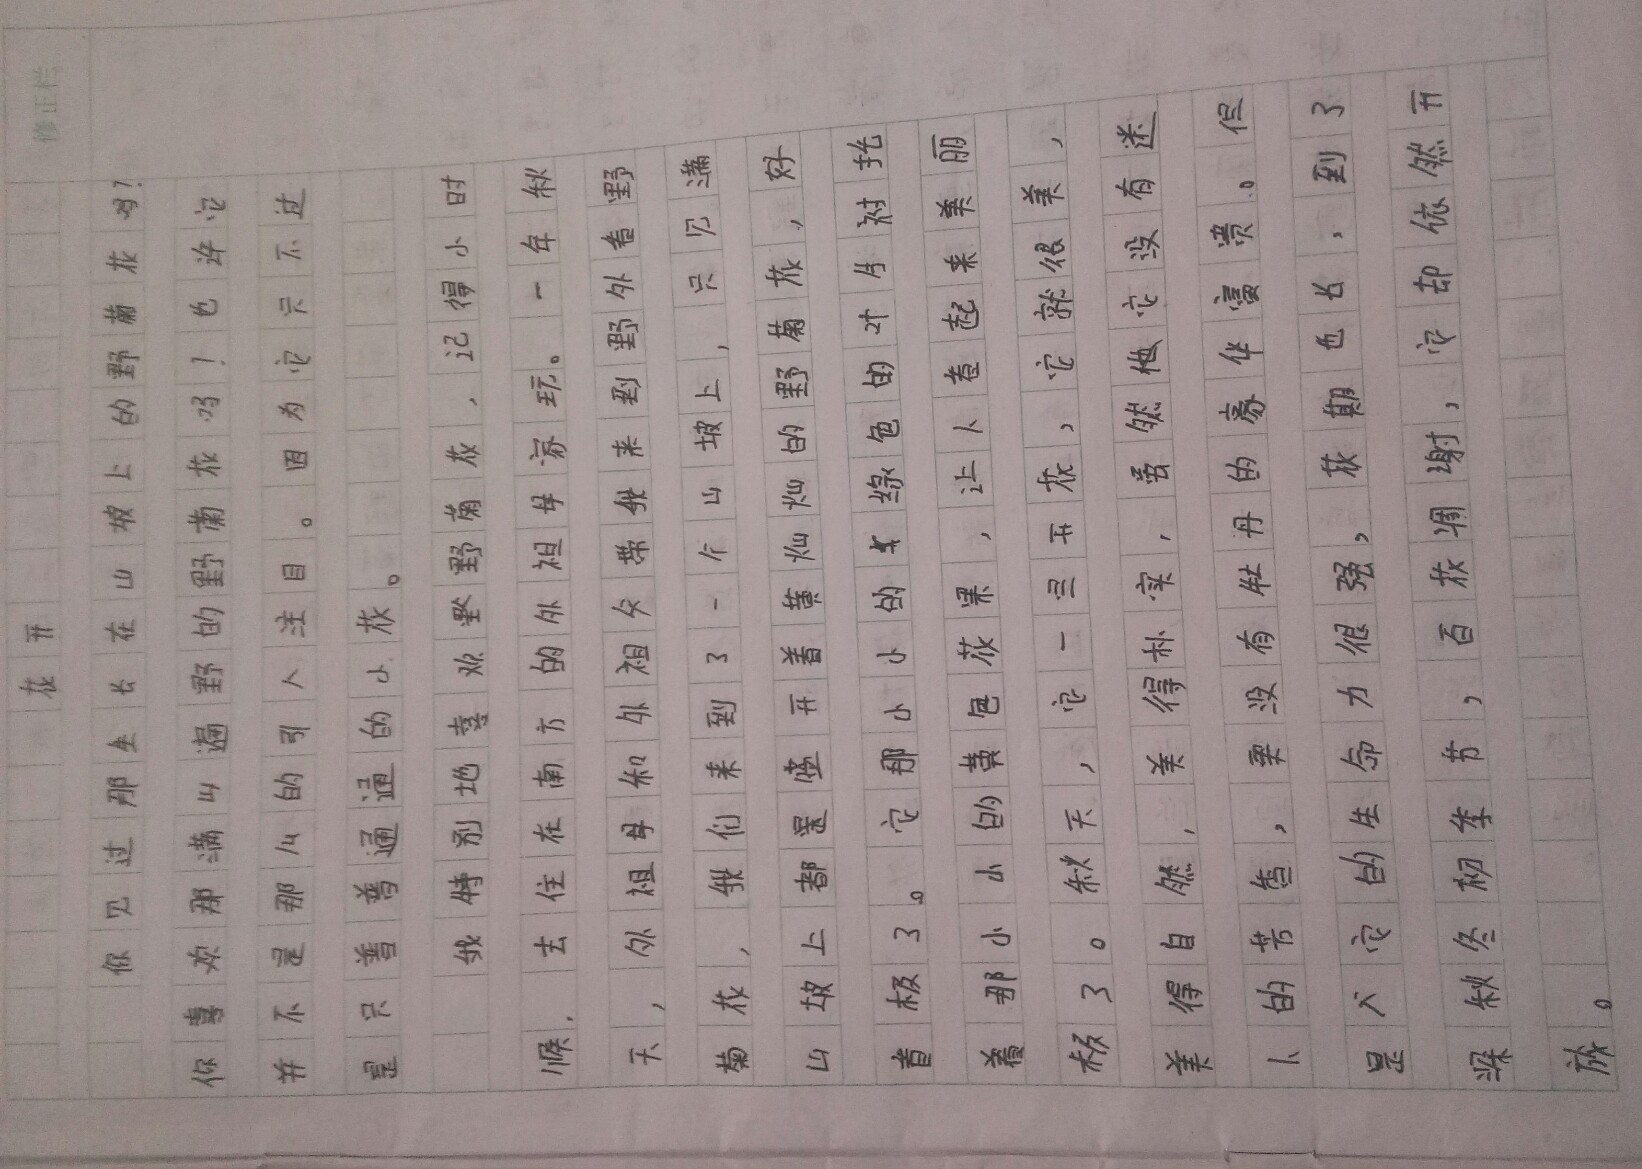 修正栏
花开
你见过那生长在山坡上的野菊花吗?
你喜欢那满山遍野的野菊花吗?也许它
并不是那么的引人注目。因为它只不过
是只普普通通的小花。
我特别地喜欢野野菊花,记得小时
候,去住在南方的外祖母家玩。一年秋
天,外祖母和外祖父带我来到野外看野
菊花,我们来到了一个山坡上,只见满
山坡上都是盛开着黄灿灿的野菊花,好
看极了。它那小小的长绿色的叶片衬托
着那小小的黄色花果,让人看起来美丽
极了。秋天,它一旦开花,它就很美,
美得自然,美得朴实,虽然做它没有迷
人的芳香,更没有牡丹的豪华富贵。但
是入它的生命力很强,花期也长,到了
深秋冬初季节,百花凋谢,它却依然开
放。